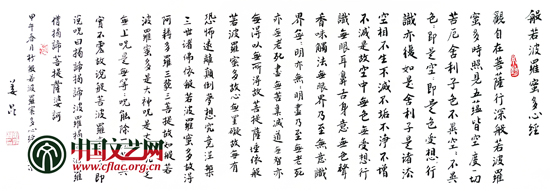 般若波羅蜜多心經
觀自在菩薩行深般若波羅
蜜多時照見五蘊皆空度一切
苦厄舍利子色不異空空不異
色色即是空空即是色受想行
識亦復如是舍利子是諸法
空相不生不滅不垢不淨不增
不減是故空中無色無受想行
識無眼耳鼻舌身意無色聲
香味觸法無眼界乃至無意識
界無無明亦無無明盡乃至無老死
亦無老死盡無苦集滅道無智亦
無得以無所得故菩提薩埵依般
若波羅蜜多故心無罣礙無罣礙故無有
恐怖遠離顛倒夢想究竟涅槃
三世諸佛依般若波羅蜜多故得
阿耨多羅三藐三菩提故知般若
波羅蜜多是大神咒是大
無上咒是無等等咒能除一
實不虛故說般若波羅 即
說咒曰揭諦揭諦波羅揭
僧揭諦菩提薩婆訶
甲午春月 般若波羅蜜多心經
姜昆
中国文艺网
www.cflac.org.cn